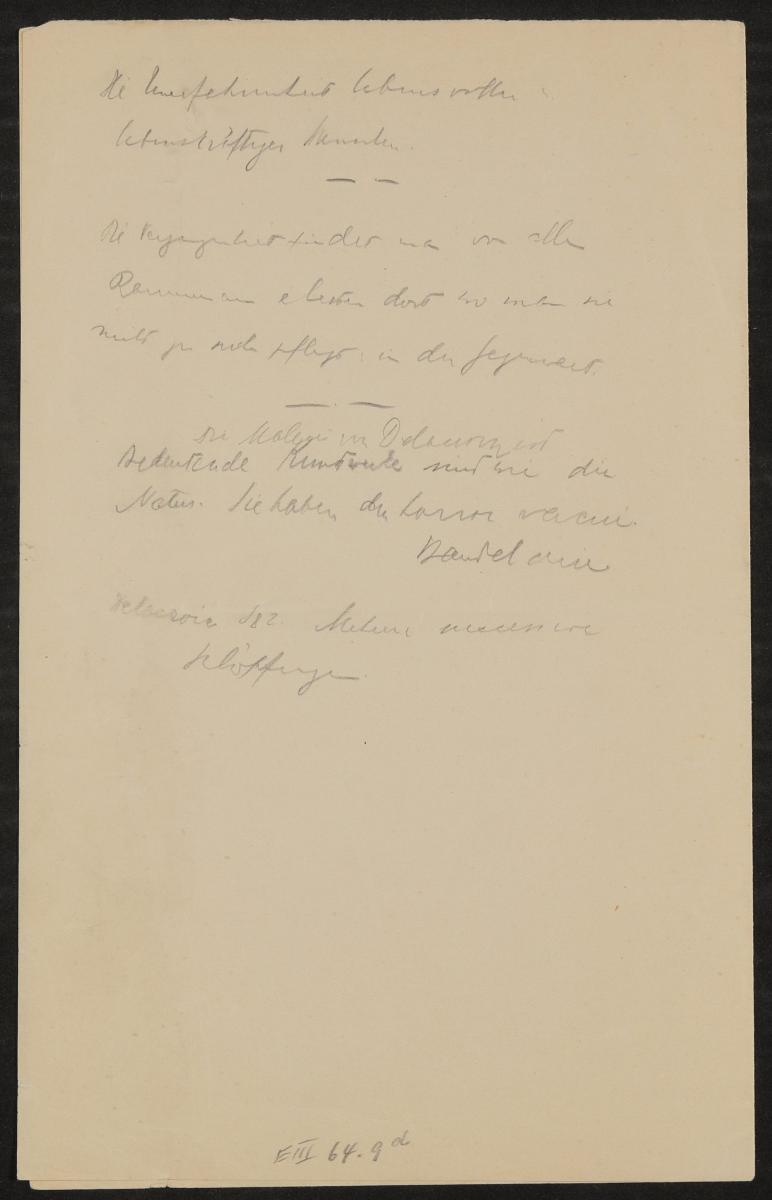 Die Unerfahrenheit lebensvoller
lebenskräftiger Menschen.
Die Vergangenheit findet man von allen
Räumen am ehesten dort wo man sie
nicht zu suchen pflegt: in der Gegenwart.
Die Malerei von Delacroix ist
Bedeutende Kunstwerke sind wie die
Natur. Sie haben den horror vacui.
Baudelaire
Delacroix 182.
Schöpfungen
E III 64.9 d